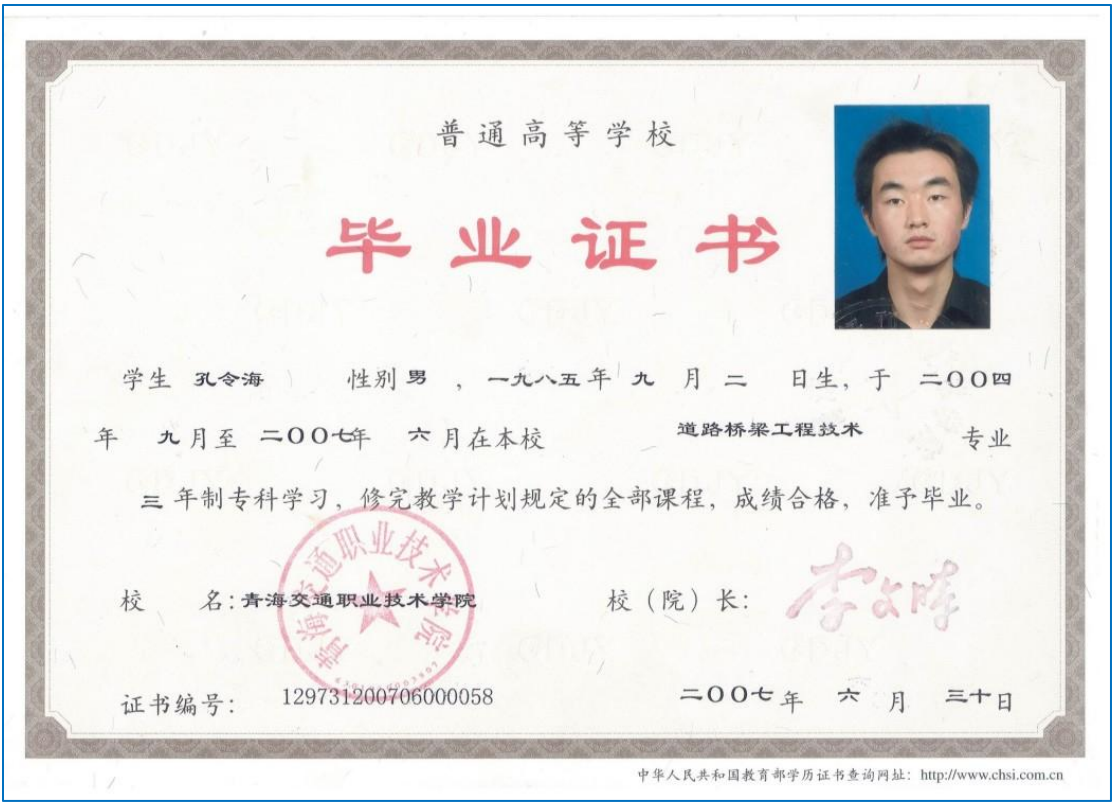 普通高等学校
毕业证书
学生 孔令海 性别 男 ，一九八五年 九 月 二 日生，于 二〇〇四
年 九月至 二〇〇七年 六月在本校 道路桥梁工程技术 专业
三 年制专科学习，修完教学计划规定的全部课程，成绩合格，准予毕业。
青海交通职业技术学院
校 名：青海交通职业技术学院 校（院）长：
证书编号： 129731200706000058 二〇〇七年 六 月 三十日
中华人民共和国教育部学历证书查询网址：http://www.chsi.com.cn